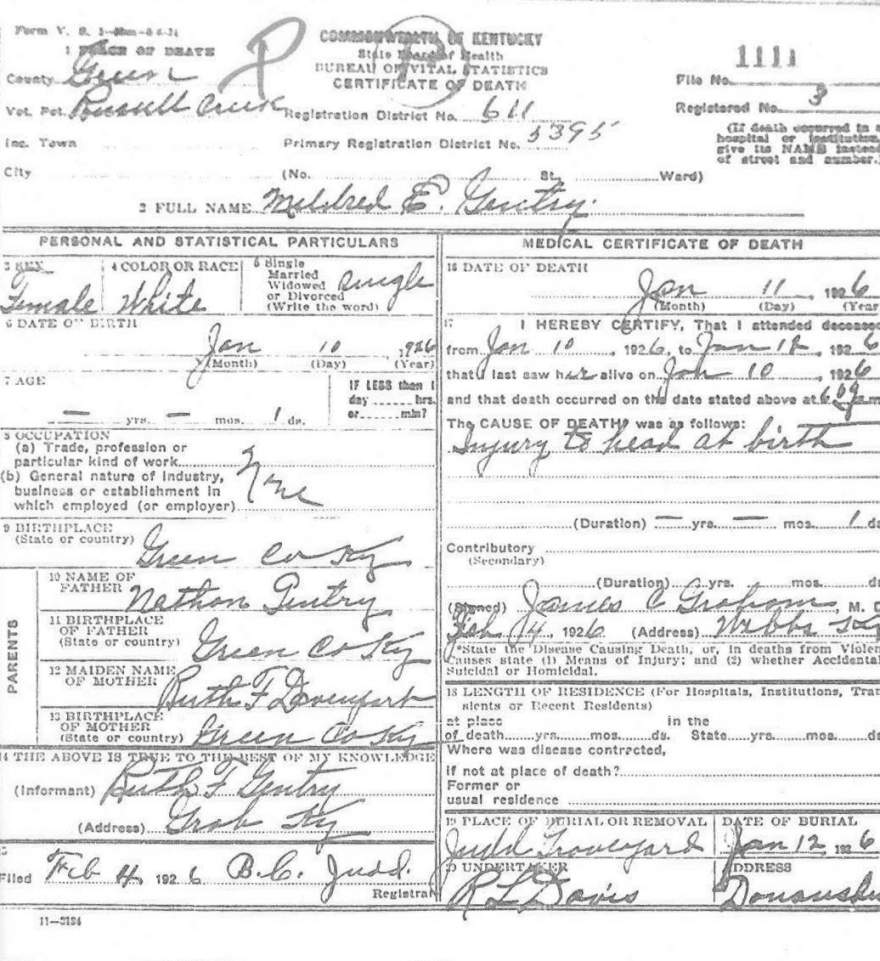 Form V. S. 1
COMMONWEALTH OF KENTUCKY
1 PLACE OF DEATH
State Board of Health
BUREAU OF VITAL STATISTICS
CERTIFICATE OF DEATH
1111
File No.
County Green
Vot. Pct. Russell Creek
Registration District No. 611
Registered No. 3
Inc. Town
Primary Registration District No. 5395
(If death occurred in a
hospital or institution,
give its NAME instead
of street and number.)
City (No. St. Ward)
2 FULL NAME Mildred E. Gentry.
PERSONAL AND STATISTICAL PARTICULARS
3 SEX
Female
4 COLOR OR RACE
White
5 Single
Married
Widowed
or Divorced
(Write the word)
Single
6 DATE OF BIRTH
Jan 10 1926
(Month) (Day) (Year)
7 AGE
— yrs. — mos. 1 ds.
IF LESS than 1
day hrs.
or min?
8 OCCUPATION
(a) Trade, profession or
particular kind of work
(b) General nature of industry,
business or establishment in
which employed (or employer)
None
9 BIRTHPLACE
(State or country) Green Co Ky
PARENTS
10 NAME OF
FATHER Nathan Gentry
11 BIRTHPLACE
OF FATHER
(State or country) Green Co Ky
12 MAIDEN NAME
OF MOTHER Ruth F Davenport
13 BIRTHPLACE
OF MOTHER
(State or country) Green Co Ky
14 THE ABOVE IS TRUE TO THE BEST OF MY KNOWLEDGE
(Informant) Ruth F Gentry
(Address) Grab Ky
Filed Feb 4, 1926 B.C. Judd.
Registrar
11—3184
MEDICAL CERTIFICATE OF DEATH
16 DATE OF DEATH
Jan 11, 1926
(Month) (Day) (Year
17 I HEREBY CERTIFY, That I attended deceased
from Jan 10, 1926, to Jan 12, 1926
that I last saw her alive on Jan 10, 1926
and that death occurred on the date stated above at m
The CAUSE OF DEATH* was as follows:
Injury to head at birth
(Duration) — yrs. — mos. 1 ds
Contributory
(Secondary)
(Duration) yrs. mos. ds
(Signed) James C Graham, M. D
Feb 4, 1926 (Address) Webbs Ky
*State the Disease Causing Death, or, in deaths from Violen
Causes state (1) Means of Injury; and (2) whether Accidental
Suicidal or Homicidal.
18 LENGTH OF RESIDENCE (For Hospitals, Institutions, Tran
sients or Recent Residents)
at place in the
of death yrs. mos. ds. State yrs. mos. ds
Where was disease contracted,
if not at place of death?
Former or
usual residence
19 PLACE OF BURIAL OR REMOVAL
Judd Graveyard
DATE OF BURIAL
Jan 12 1926
20 UNDERTAKER
R L Davis
ADDRESS
Donansbu